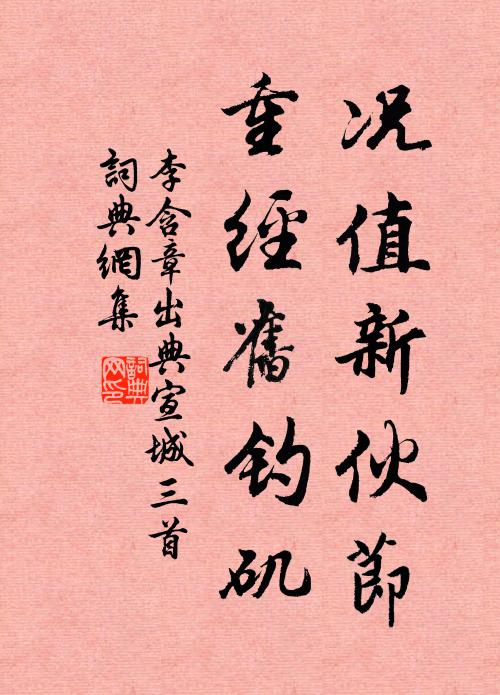 况值新伙節
重經舊钓矶
李含章出典宣城三首
詞典網集
詞典
网印